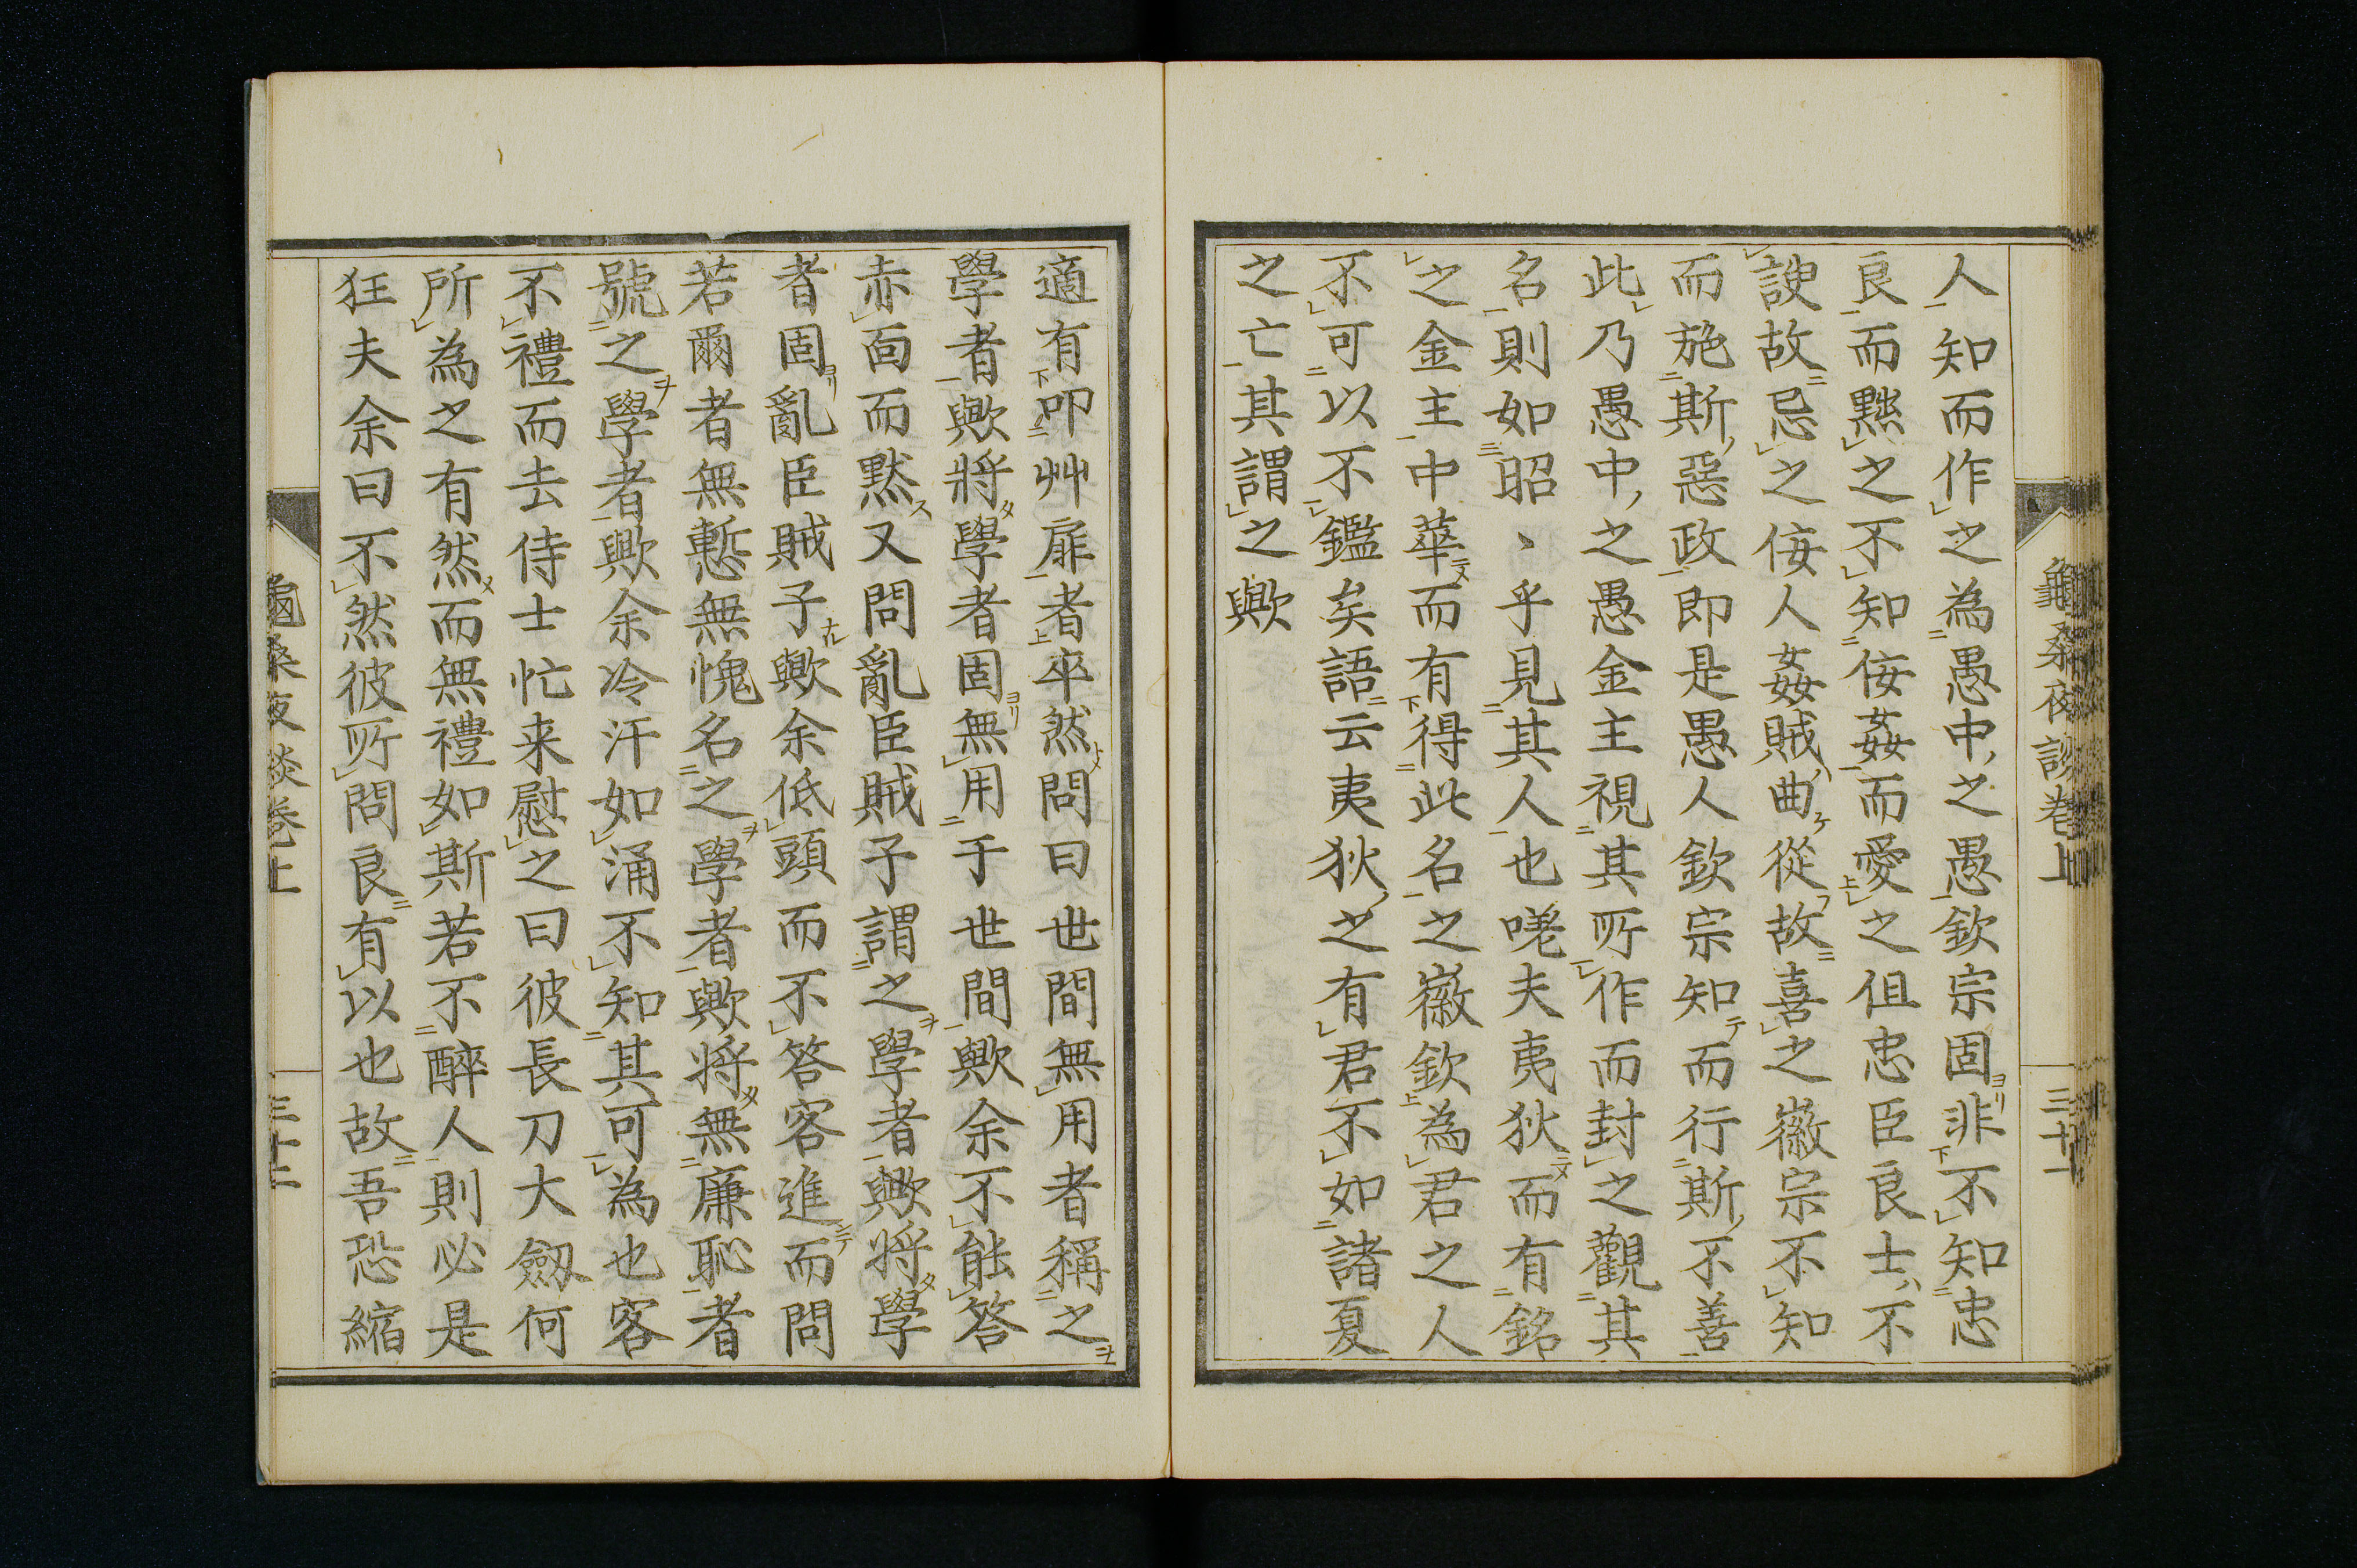 人知而作之為愚中之愚欽宗固非不知忠
良而黜之不知侫姦而愛之但忠臣良士不
諛故忌之侫人姦賊曲從故喜之徽宗不知
而施斯惡政即是愚人欽宗知而行斯不善
此乃愚中之愚金主視其所作而封之觀其
名則如昭〻乎見其人也嗟夫夷狄而有銘
之金主中華而有得此名之徽欽為君之人
不可以不鑑矣語云夷狄之有君不如諸夏
之亡其謂之歟
適有叩艸扉者卒然問曰世間無用者稱之
學者歟將學者固無用于世間歟余不能答
赤面而默又問亂臣賊子謂之學者歟將學
者固亂臣賊子歟余低頭而不答客進而問
若爾者無慙無愧名之學者歟将無廉恥者
號之學者歟余冷汗如涌不知其可為也客
不禮而去侍士忙来慰之曰彼長刀大劔何
所為之有然而無禮如斯若不醉人則必是
狂夫余曰不然彼所問良有以也故吾恐縮
龜桑夜談卷上
三十一
龜桑夜談卷上
三十二